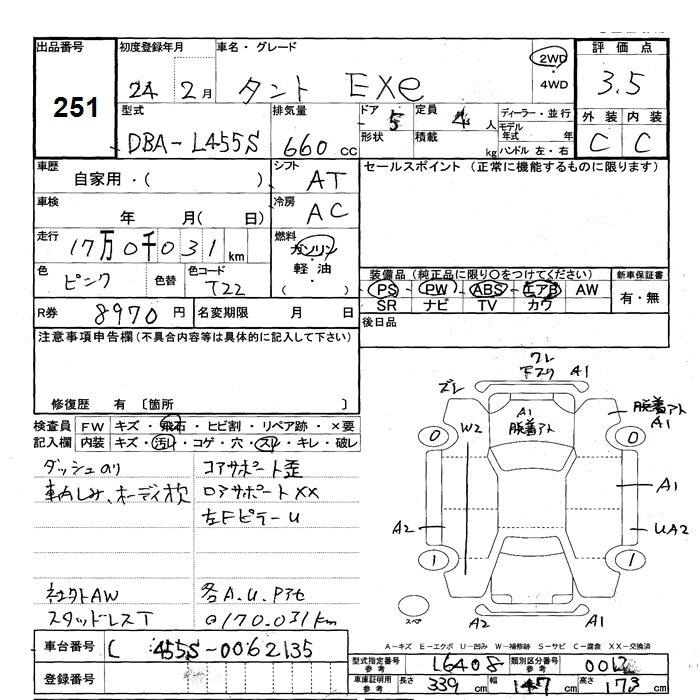 出品番号
251
初度登録年月
24 2月
車名・グレード
タント EXe
2WD
・
4WD
評価点
3.5
型式
DBA-L455S
排気量
660 cc
ドア 5
形状
定員 4 人
積載 kg
ディーラー・並行
モデル
年式 年
ハンドル 左・右
外装 内装
C C
車歴
自家用・( )
シフト
AT
セールスポイント (正常に機能するものに限ります)
車検
年 月( 日)
冷房
AC
走行
17万0千031 km
燃料
ガソリン
・
軽・油
( )
色
ピンク
色替
色コード
T22
装備品 (純正品に限り○をつけてください)
PS・PW・ABS・エアB・AW
SR ナビ TV カワ
新車保証書
有・無
R券 8970 円
名変期限 月 日
後日品
注意事項申告欄 (不具合内容等は具体的に記入して下さい)
修復歴 有 〔箇所 〕
検査員 FW キズ・飛石・ヒビ割・リペア跡・×要
記入欄 内装 キズ・汚れ・コゲ・穴・スレ・キレ・破レ
ダッシュのり
車内しみ、ボーディオ欠
コアサポート歪
ロアサポートXX
左Fピラー U
社外AW
スタッドレスT
各A.U.Pアセ
@170.031km
ワレ
下スリ A1
ズレ
A1
脱着アト
脱着アト
A1
W2
0
0
A1
A2
UA2
1
1
スペア
A2
A1
A-キズ E-エクボ U-凹み W-補修跡 S-サビ C-腐食 XX-交換済
車台番号 L 455S-0062135
登録番号
型式指定番号
参考
16408
類別区分番号
参考
車庫証明用
参考
長さ 339 cm 幅 147 cm 高さ 173 cm